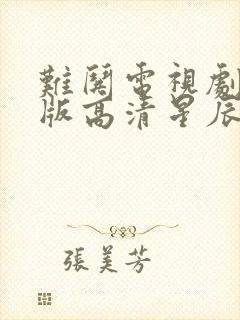 難関電視劇
版高清星辰
張美芳